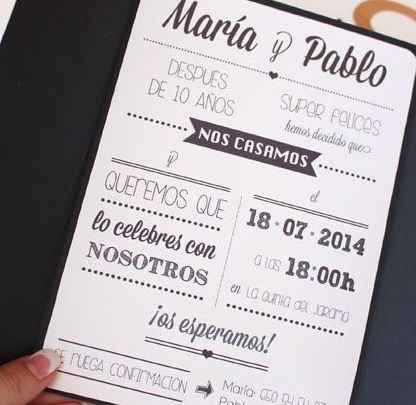 María y Pablo
DESPUES
DE 10 AÑOS
SUPER FELICES
hemos decidido que
NOS CASAMOS
y
QUEREMOS QUE
lo celebres con
NOSOTROS
el
18·07·2014
a las 18:00h
en La Quinta del Jarama
¡os esperamos!
SE RUEGA CONFIRMACION
María:
Pablo